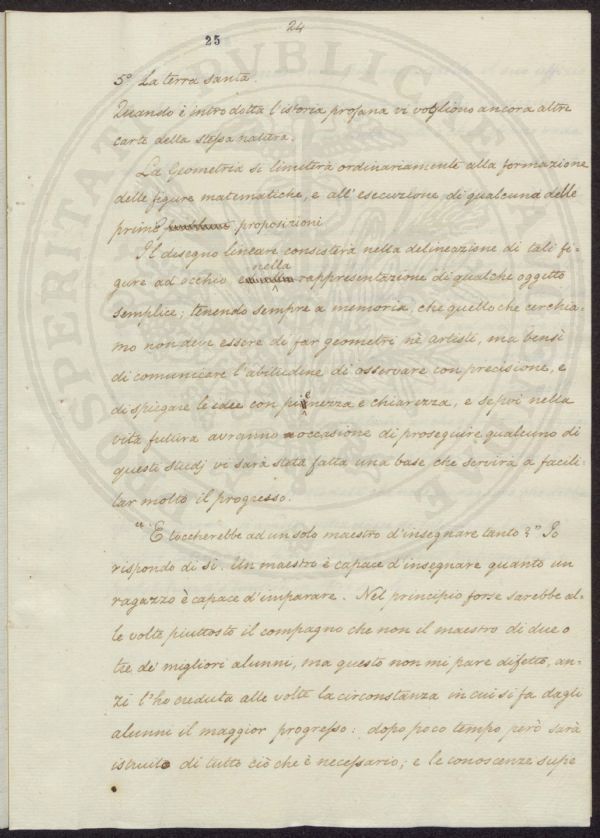 24
25
5º La terra santa.
Quando è introdotta l'istoria profana vi vogliono ancora altre
carte della stessa natura.
La Geometria si limiterà ordinariamente alla formazione
delle figure matematiche, e all'esecuzione di qualcuna delle
prime proposizioni
Il disegno lineare consisterà nella delineazione di tali fi-
gure ad occhio e nella rappresentazione di qualche oggetto
semplice; tenendo sempre a memoria, che quello che cerchia-
mo non deve essere di far geometri nè artisti, ma bensì
di comunciare l'abitudine di osservare con precisione, e
di spiegare le idee con pienezza e chiarezza, e se poi nella
vita futura avranno occasione di proseguire qualcuno di
questi studj vi sarà stata fatta una base che servirà a facili-
tar molto il progresso.
"E toccherebbe ad un solo maestro d'insegnare tanto?" Io
rispondo di si. Un maestro è capace d'insegnare quanto un
ragazzo è capace d'imparare. Nel principio forse sarebbe al-
le volte piuttosto il compagno che non il maestro di due o
tre de' migliori alunni, ma questo non mi pare difetto, an-
zi l'ho creduta alle volte la circonstanza in cui si fa dagli
alunni il maggior progresso: dopo poco tempo però sarà
istruito di tutto ciò che è necessario; e le conoscenze supe
PROSPERITATI PVBLICAE